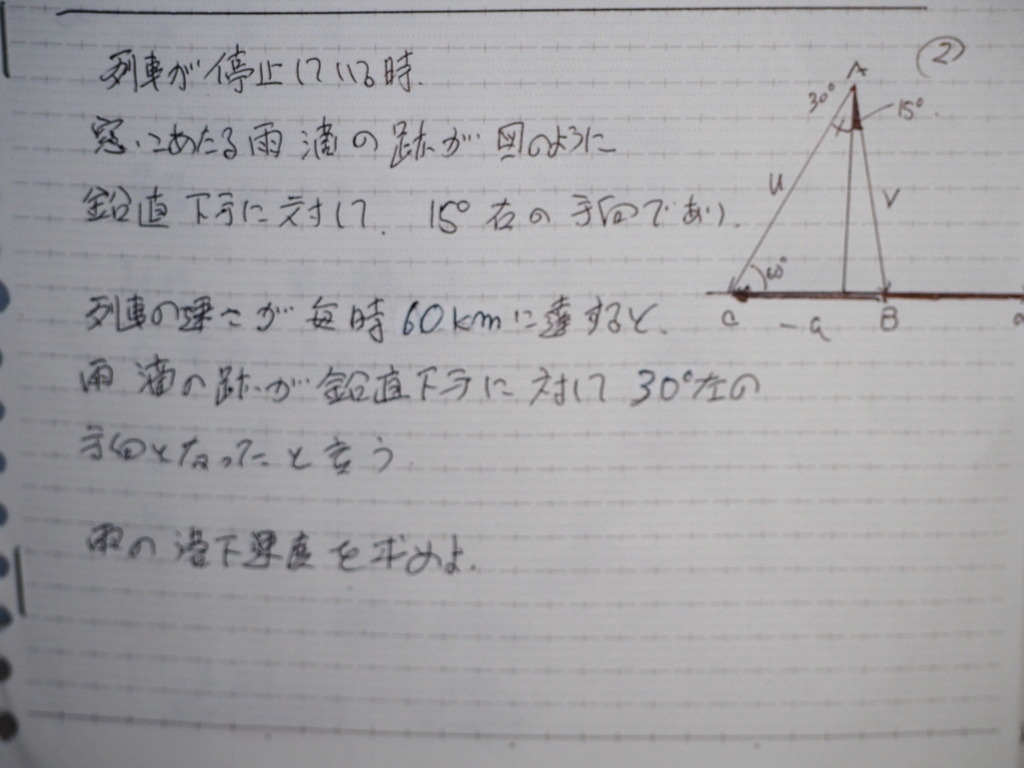 列車が停止している時.
窓にあたる雨滴の跡が図のように
鉛直下方に対して. 15°右の方向であり.
列車の速さが毎時60kmに達すると.
雨滴の跡が鉛直下方に対して30°左の
方向となったと言う
雨の落下速度を求めよ.
(2)
A
30°
15°.
u
v
60°
C
-a
B
a